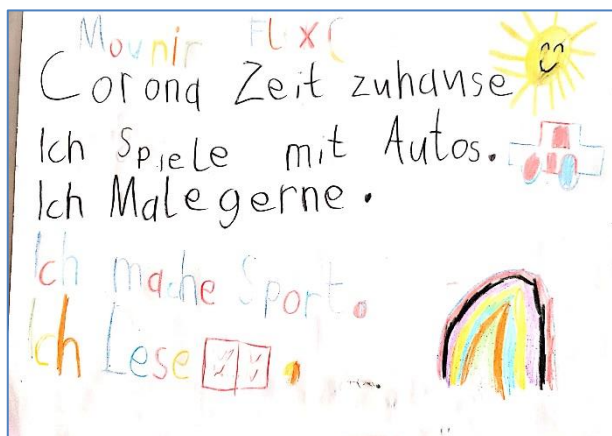 Mounir Flex C
Corona Zeit zuhause
Ich Spiele mit Autos.
Ich Male gerne.
Ich mache Sport.
Ich Lese.